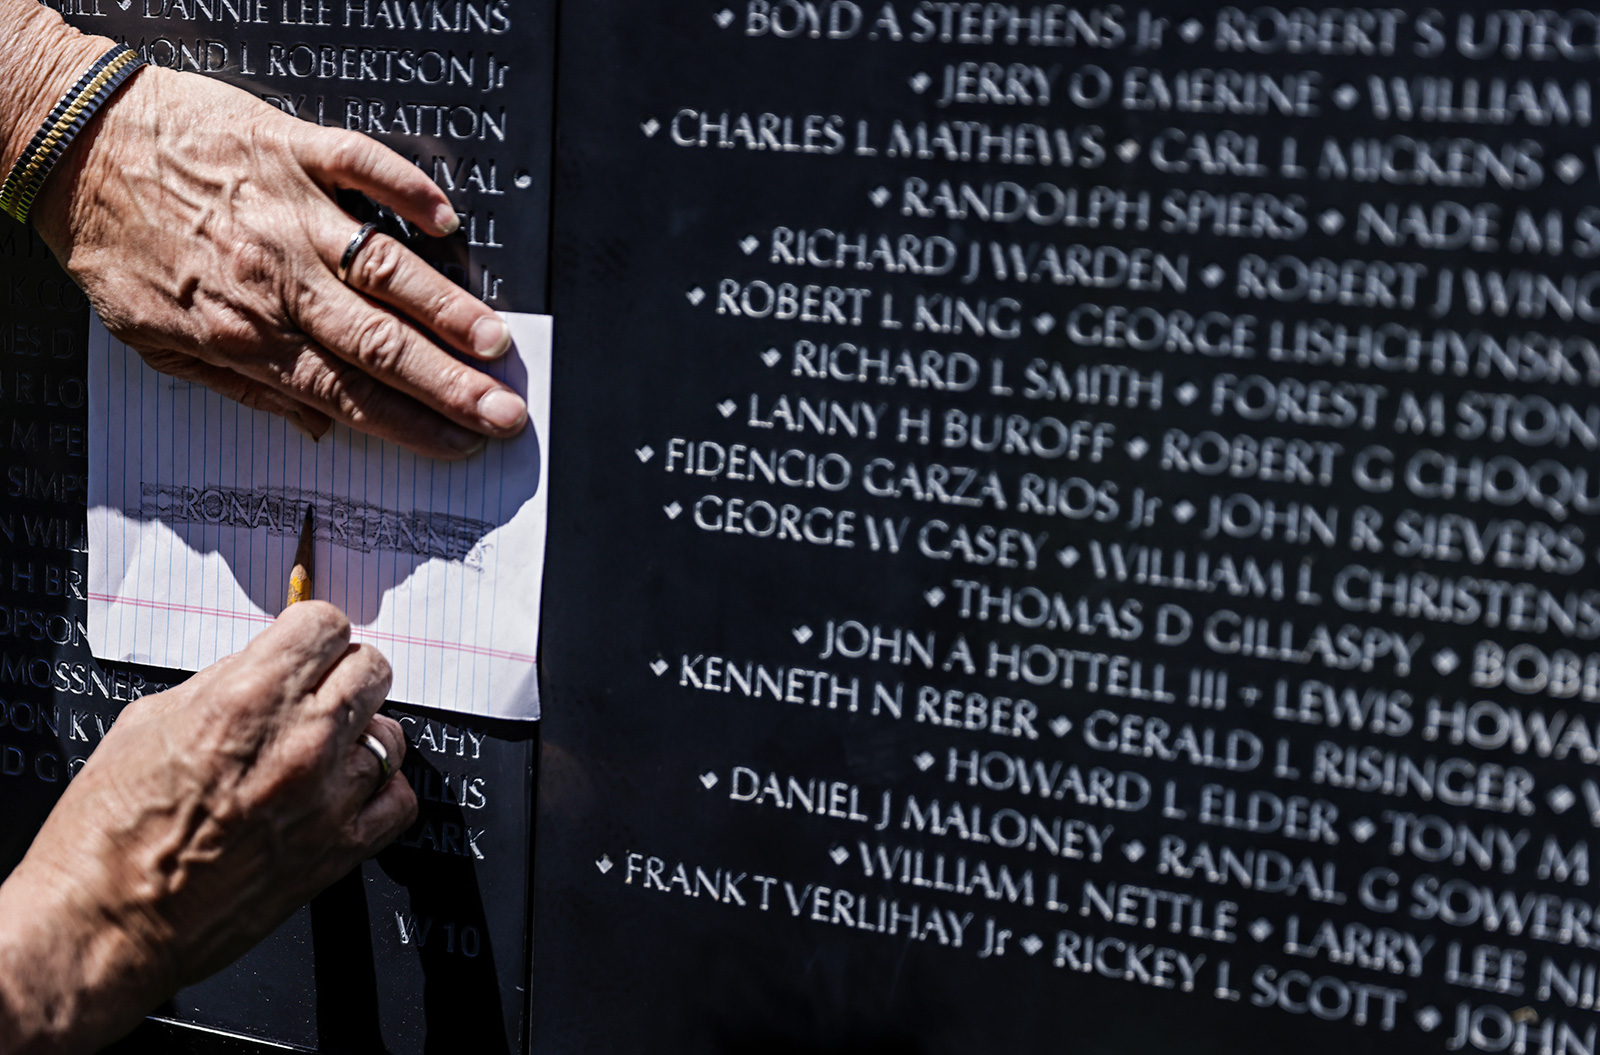 DANNIE LEE HAWKINS
L ROBERTSON Jr
L BRATTON
Jr
K CO
D
R LO
M PE
SIMPS
WILL
H BR
OPSON
MOSSNER
DON K
CAHY
ILLIS
LARK
D G
W 10
RONALD R TANNE
BOYD A STEPHENS Jr ◆ ROBERT S UTEC
JERRY O EMERINE ◆ WILLIAM
CHARLES L MATHEWS ◆ CARL L MICKENS ◆
RANDOLPH SPIERS ◆ NADE M S
RICHARD J WARDEN ◆ ROBERT J WING
ROBERT L KING ◆ GEORGE LISHCHYNSKY
RICHARD L SMITH ◆ FOREST M STON
LANNY H BUROFF ◆ ROBERT G CHOQU
FIDENCIO GARZA RIOS Jr ◆ JOHN R SIEVERS
GEORGE W CASEY ◆ WILLIAM L CHRISTENS
THOMAS D GILLASPY ◆ BOBB
JOHN A HOTTELL III ◆ LEWIS HOWA
KENNETH N REBER ◆ GERALD L RISINGER ◆
HOWARD L ELDER ◆ TONY M
DANIEL J MALONEY ◆ RANDAL G SOWERS
WILLIAM L NETTLE ◆ LARRY LEE NI
FRANK T VERLIHAY Jr ◆ RICKEY L SCOTT ◆ JOHN